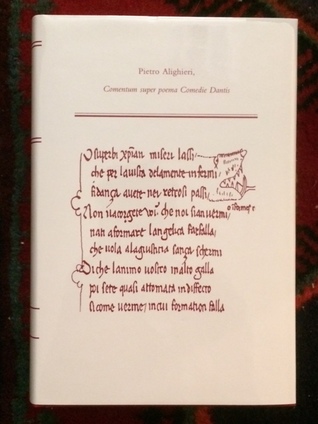 Pietro Alighieri,
Comentum super poema Comedie Dantis
O superbi xp̄ian miseri lassi
che per la uista dela mente infermi
fidança auete nei retrosi passi
Non uacorgete uoi che noi sian uermi
nati a formare langelica farfalla
che uola ala giustitia sança schermi
Di che lanimo uostro in alto galla
poi sete quasi in difecto
si come uerme in cui formation falla